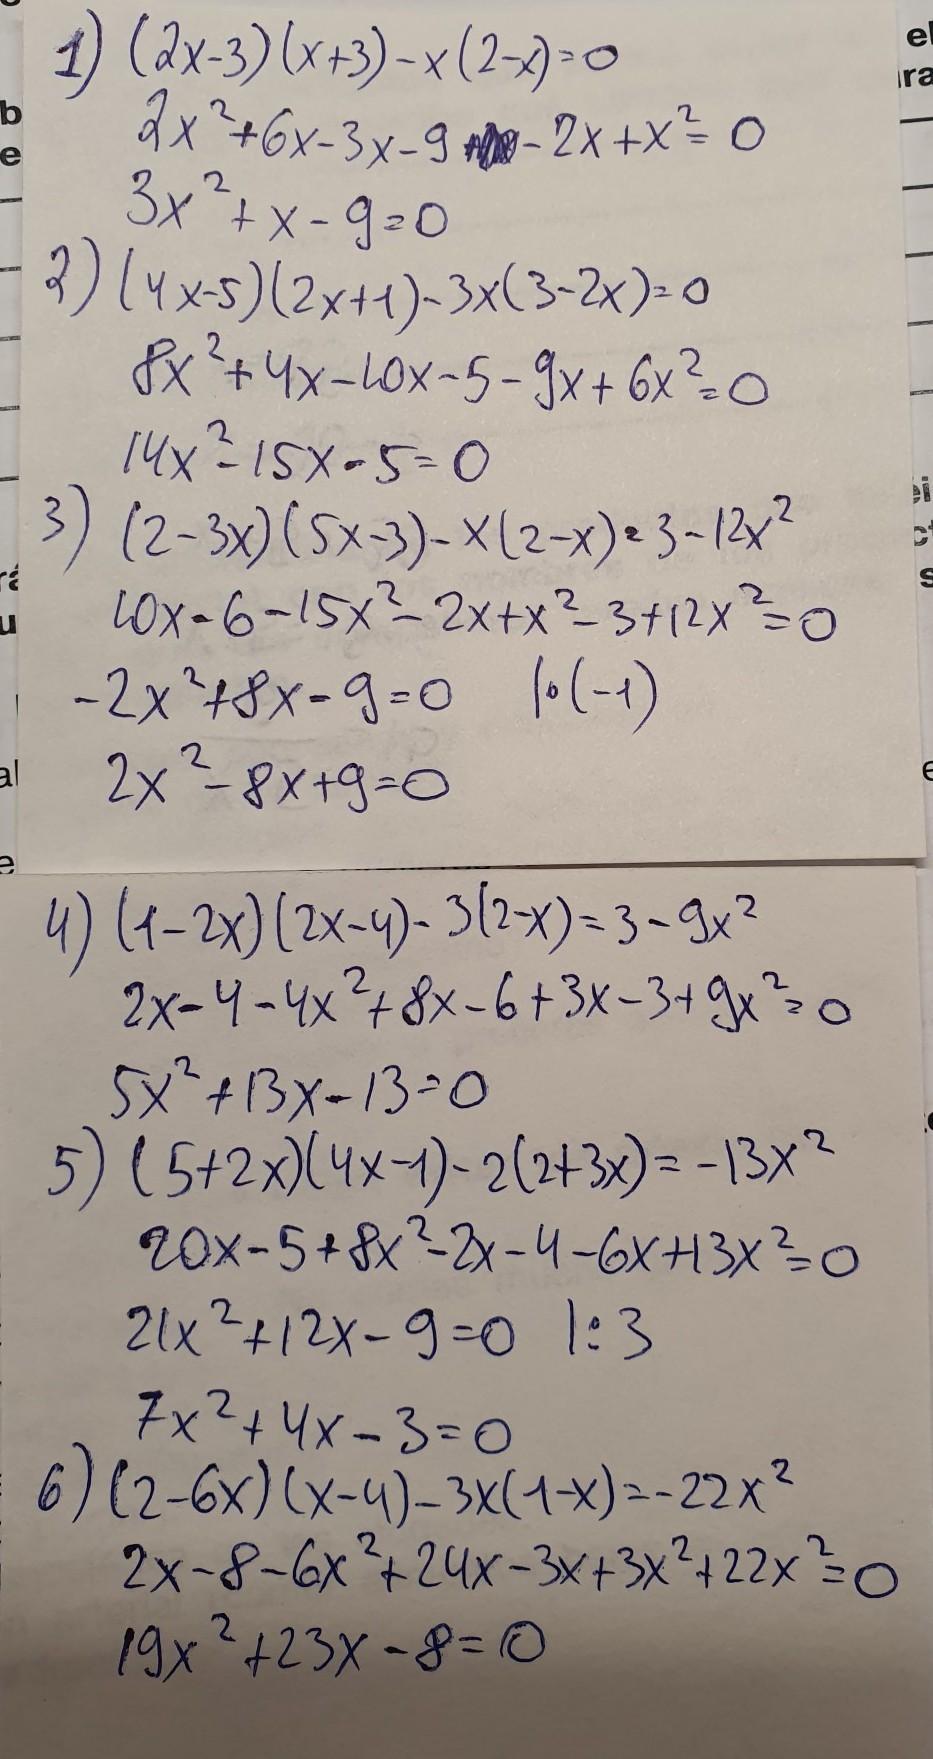 1) (2x-3)(x+3)-x(2-x)=0
2x²+6x-3x-9 -2x+x²=0
3x²+x-9=0
2) (4x-5)(2x+1)-3x(3-2x)=0
8x²+4x-10x-5-9x+6x²=0
14x²-15x-5=0
3) (2-3x)(5x-3)-x(2-x)=3-12x²
10x-6-15x²-2x+x²-3+12x²=0
-2x²+8x-9=0 |·(-1)
2x²-8x+9=0
4) (1-2x)(2x-4)-3(2-x)=3-9x²
2x-4-4x²+8x-6+3x-3+9x²=0
5x²+13x-13=0
5) (5+2x)(4x-1)-2(2+3x)=-13x²
20x-5+8x²-2x-4-6x+13x²=0
21x²+12x-9=0 |:3
7x²+4x-3=0
6) (2-6x)(x-4)-3x(1-x)=-22x²
2x-8-6x²+24x-3x+3x²+22x²=0
19x²+23x-8=0